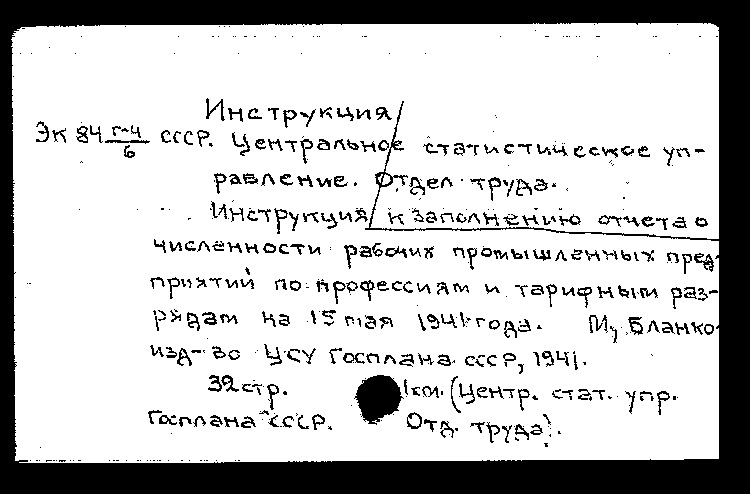 Инструкция
Эк 84 г-4/6 СССР. Центральное статистическое уп-
равление. Отдел труда.
Инструкция к заполнению отчета о
численности рабочих промышленных пред-
приятий по профессиям и тарифным раз-
рядам на 15 мая 1941 года. М, Бланко-
изд-во ЦСУ Госплана СССР, 1941.
32 стр. (Центр. стат. упр.
Госплана СССР. Отд. труда).